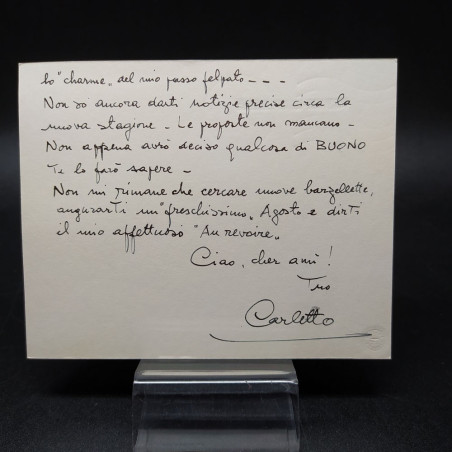 lo "charme" del mio passo felpato - - -
Non so ancora darti notizie precise circa la
nuova stagione - Le proposte non mancano -
Non appena avrò deciso qualcosa di BUONO
Te lo farò sapere -
Non mi rimane che cercare nuove barzellette,
augurarti un "freschissimo" Agosto e dirti
il mio affettuoso "Au revoire"
Ciao, cher ami!
Tuo
Carletto